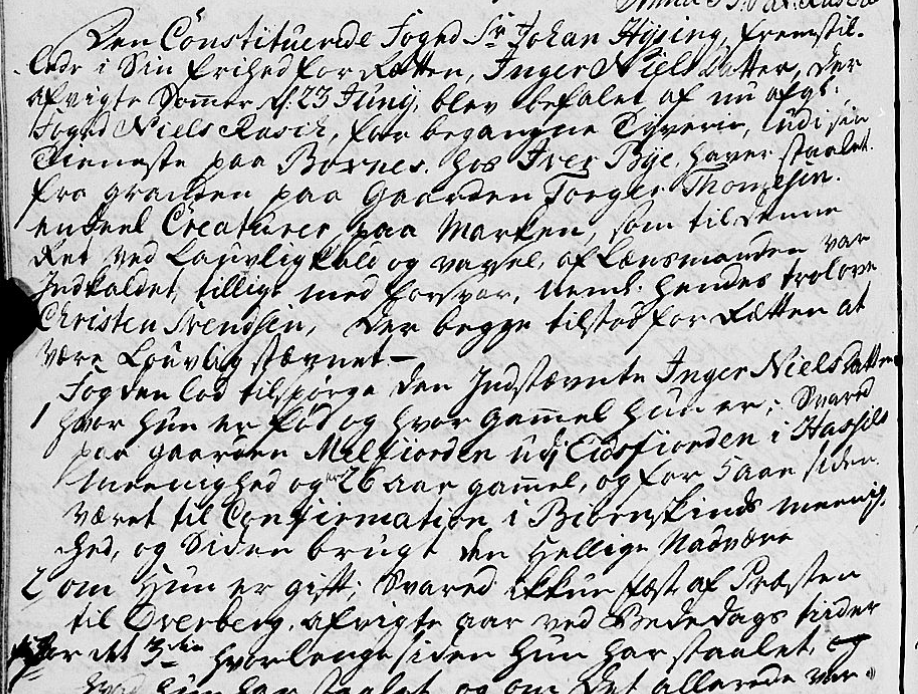 Den Constituerede Foged Sr Johan Hysing, fremstil-
lede i Sin frihed for Rætten, Inger Niels Datter, der
afvigte Sommer d: 23 Junij, blev befalet af nu afg:
Foged Niels Rasch, for begangne Tyverie, udi sin
Tieneste paa Boxnes, hos Iver Bye, haver staalet
fra granden paa Gaarden Torger Thomesen
en deel Creaturer paa Marken, som til denne
Ret ved Lauvlig kald og varsel, af Lænsmanden var
Indkaldet, tillige med forsvar, nemb: hendes trolove
Christen Svendsen, der begge tilstod for Rætten at
være Louvlig stævnet —
Fogden lod tilspørge den Indstævnte Inger Niels Datter
1 hvor hun er fød og hvor gammel hun er; Svared
paa gaarden Melfiorden udj Eidsfiorden i Hassels
meenighed og 26 aar gammel, og for 5 aar siden
været til Confirmation i Biørnskinds meenig-
hed, og Siden brugt den Hellige Nadvære
2 om Hun er gift; Svared ikkun fæst af Præsten
til Overberg, afvigte aar ved Bededags tider
for det 3die hvorlenge siden hun har staalet, og
hvad hun har staalet og om det allerede var